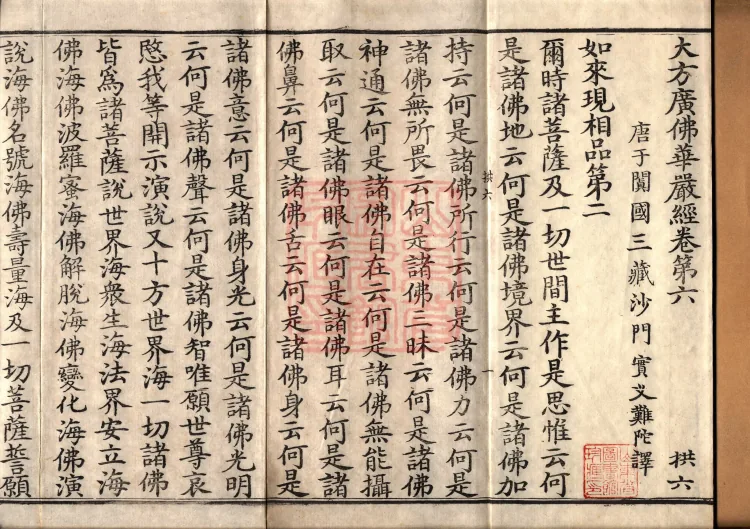 大方廣佛華嚴經卷第六 拱六
唐于闐國三藏沙門實叉難陀譯
如來現相品第二
爾時諸菩薩及一切世間主作是思惟云何
是諸佛地云何是諸佛境界云何是諸佛加
拱六 一
持云何是諸佛所行云何是諸佛力云何是
諸佛無所畏云何是諸佛三昧云何是諸佛
神通云何是諸佛自在云何是諸佛無能攝
取云何是諸佛眼云何是諸佛耳云何是諸
佛鼻云何是諸佛舌云何是諸佛身云何是
諸佛意云何是諸佛身光云何是諸佛光明
云何是諸佛聲云何是諸佛智唯願世尊哀
愍我等開示演說又十方世界海一切諸佛
皆為諸菩薩說世界海衆生海法界安立海
佛海佛波羅蜜海佛解脫海佛變化海佛演
說海佛名號海佛壽量海及一切菩薩誓願